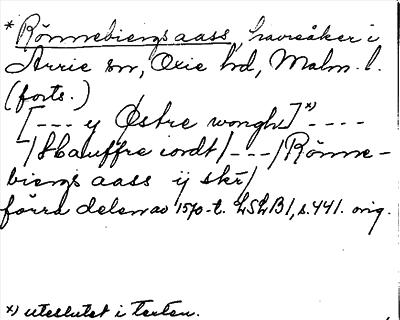 * Rönnebiergs aass, havreåker i
Arrie sn, Oxie hd, Malm. l.
(forts.)
[--- y Østre wongh]ˣ⁾ ----
/Hauffre iordt/---/Rönne-
biergs aass ij skr/
förra delen av 1570-t. LSLB1, s. 441. orig.
x) uteslutet i texten.